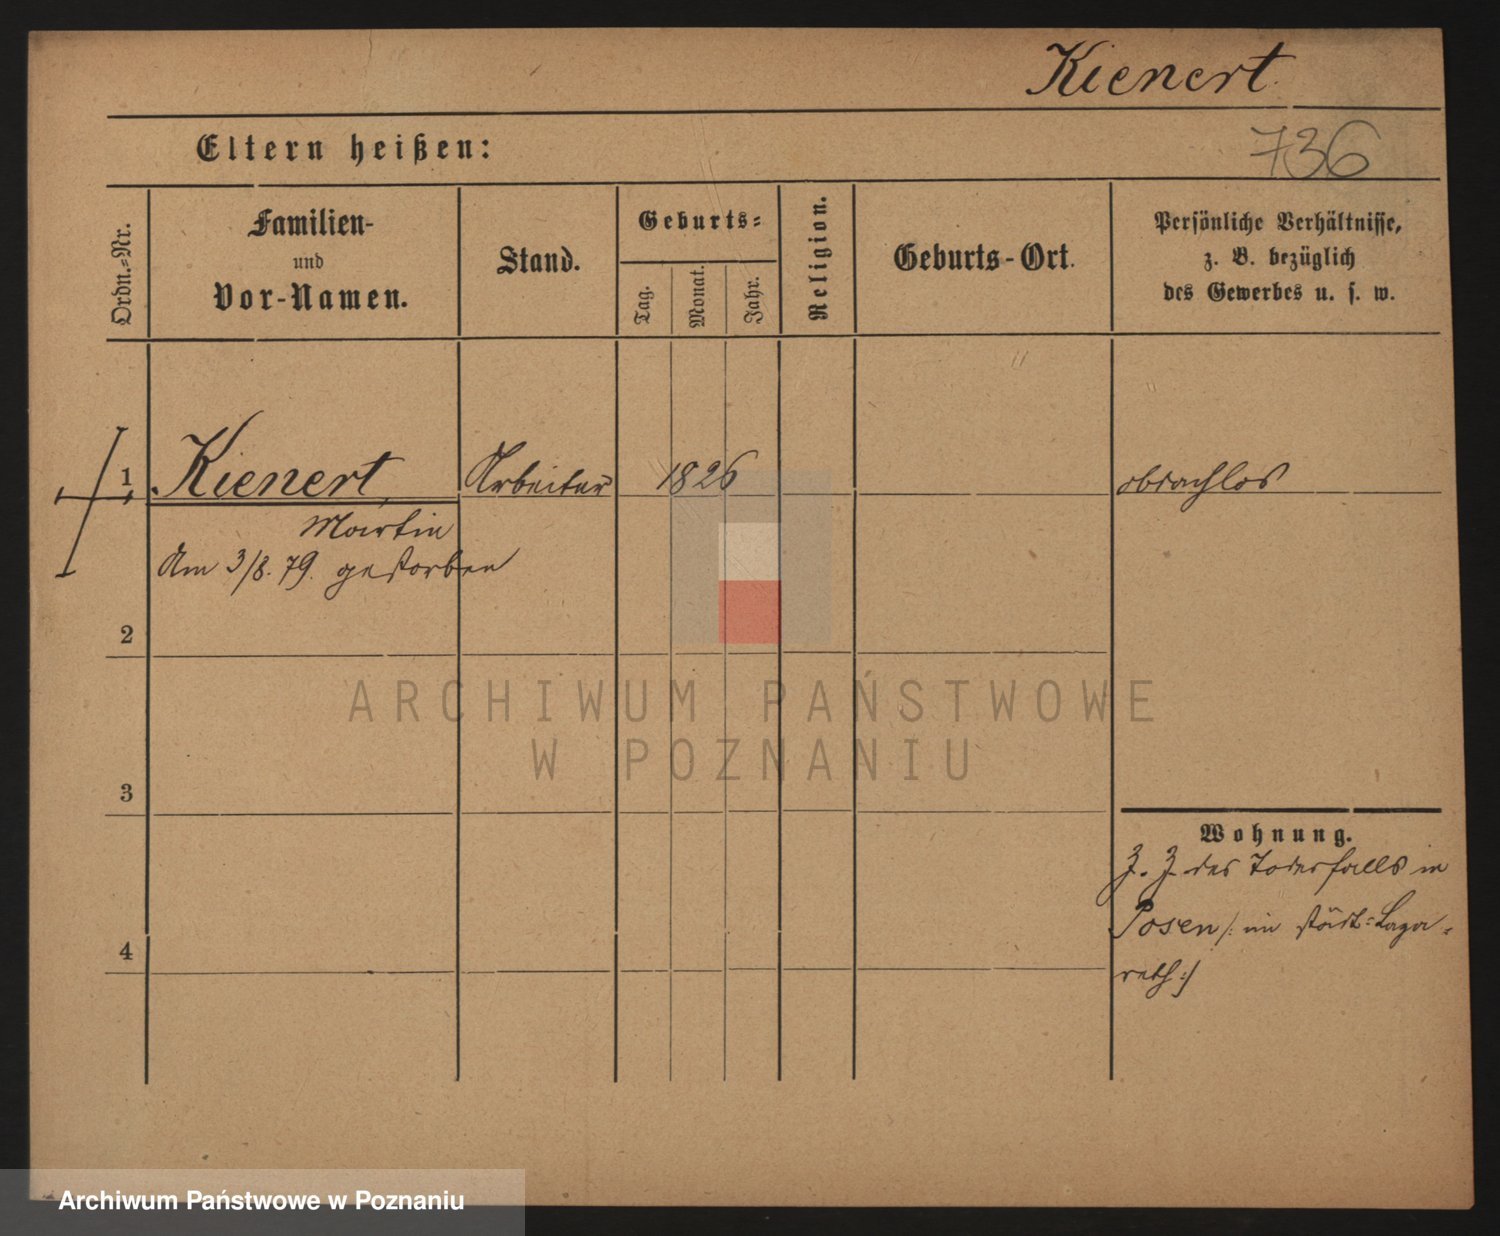 Kienert.
Eltern heißen:
736
Ordn.=Nr.
Familien-
und
Vor-Namen.
Stand.
Geburts=
Tag.
Monat.
Jahr.
Religion.
Geburts-Ort.
Persönliche Verhältnisse,
z. B. bezüglich
des Gewerbes u. s. w.
1
Kienert,
Arbeiter
1826
obdachlos
Martin
Am 3/8. 79. gestorben
2
ARCHIWUM PAŃSTWOWE
W POZNANIU
3
Wohnung.
z. Z. des Todesfalls in
Posen /: im städt= Laza=
reth :/
4
Archiwum Państwowe w Poznaniu